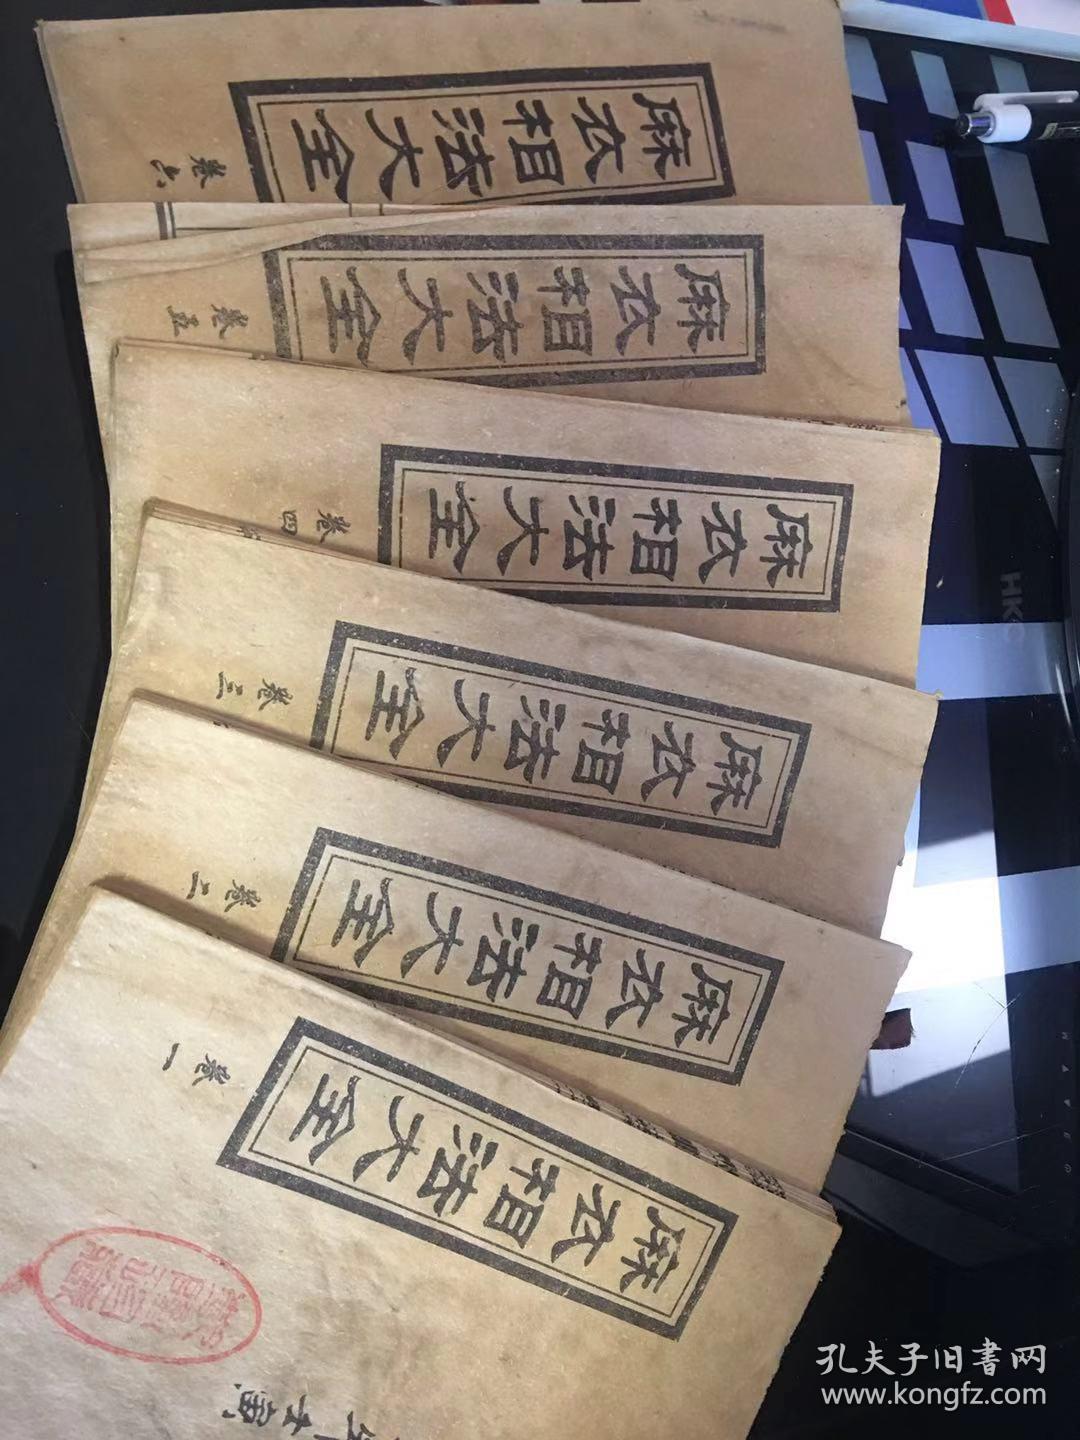 麻衣相法大全
卷六
麻衣相法大全
卷五
麻衣相法大全
卷四
麻衣相法大全
卷三
麻衣相法大全
卷二
麻衣相法大全
卷一
HKC
孔夫子旧書网
www.kongfz.com